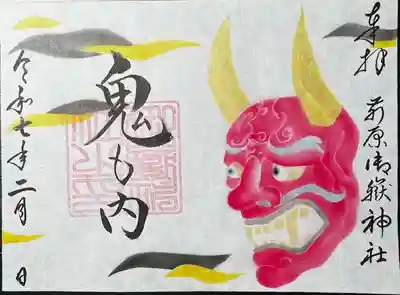 奉拝
前原御嶽神社
鬼も内
令和七年二月 日